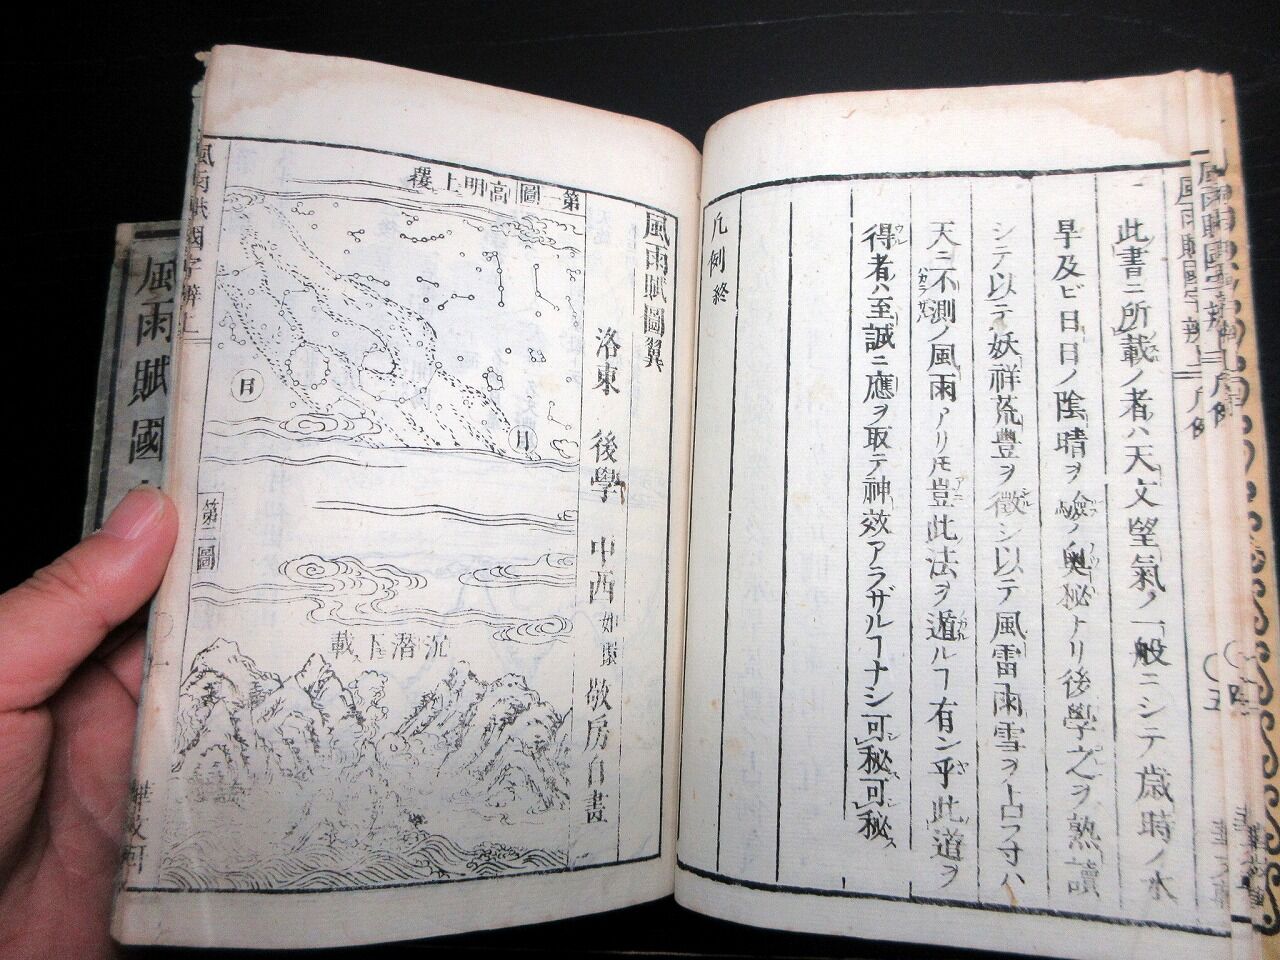 一此書ニ所載ノ者ハ天文望氣ノ一般ニシテ歳時ノ水
旱及ビ日日ノ陰晴ヲ驗ノ奥秘トリ後學之ヲ熟讀
シテ以テ妖祥荒豊ヲ徴シ以テ風雷雨雪ヲ占フ寸ハ
天ニ不測ノ風雨アリ𪜈豈此法ヲ遁ルヿ有ン乎此道ヲ
得者ハ至誠ニ應ヲ取テ神效アラザルヿナシ可秘可秘
凡例終
風雨賦圖翼
洛東 後學 中西 敬房自畫
第一圖高明上覆
日
月
第二圖
沉潜下載
風雨賦國字辨上
風雨賦國